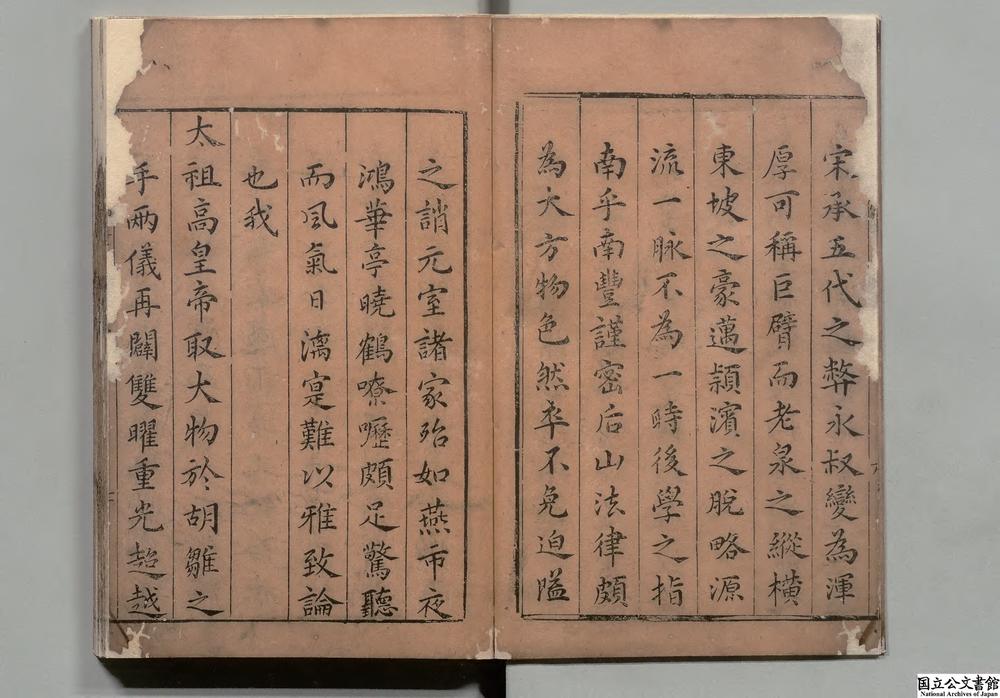 宋承五代之弊永叔變為渾
厚可稱巨臂而老泉之縱橫
東坡之豪邁頴濱之脫略源
流一脉不為一時後學之指
南乎南豐謹密后山法律頗
為大方物色然率不免迫隘
之誚元室諸家殆如燕市夜
鴻華亭曉鶴嘹嚦頗足驚聽
而風氣日漓寔難以雅致論
也我
太祖高皇帝取大物於胡雛之
手兩儀再闢雙曜重光超越
国立公文書館
National Archives of Japan